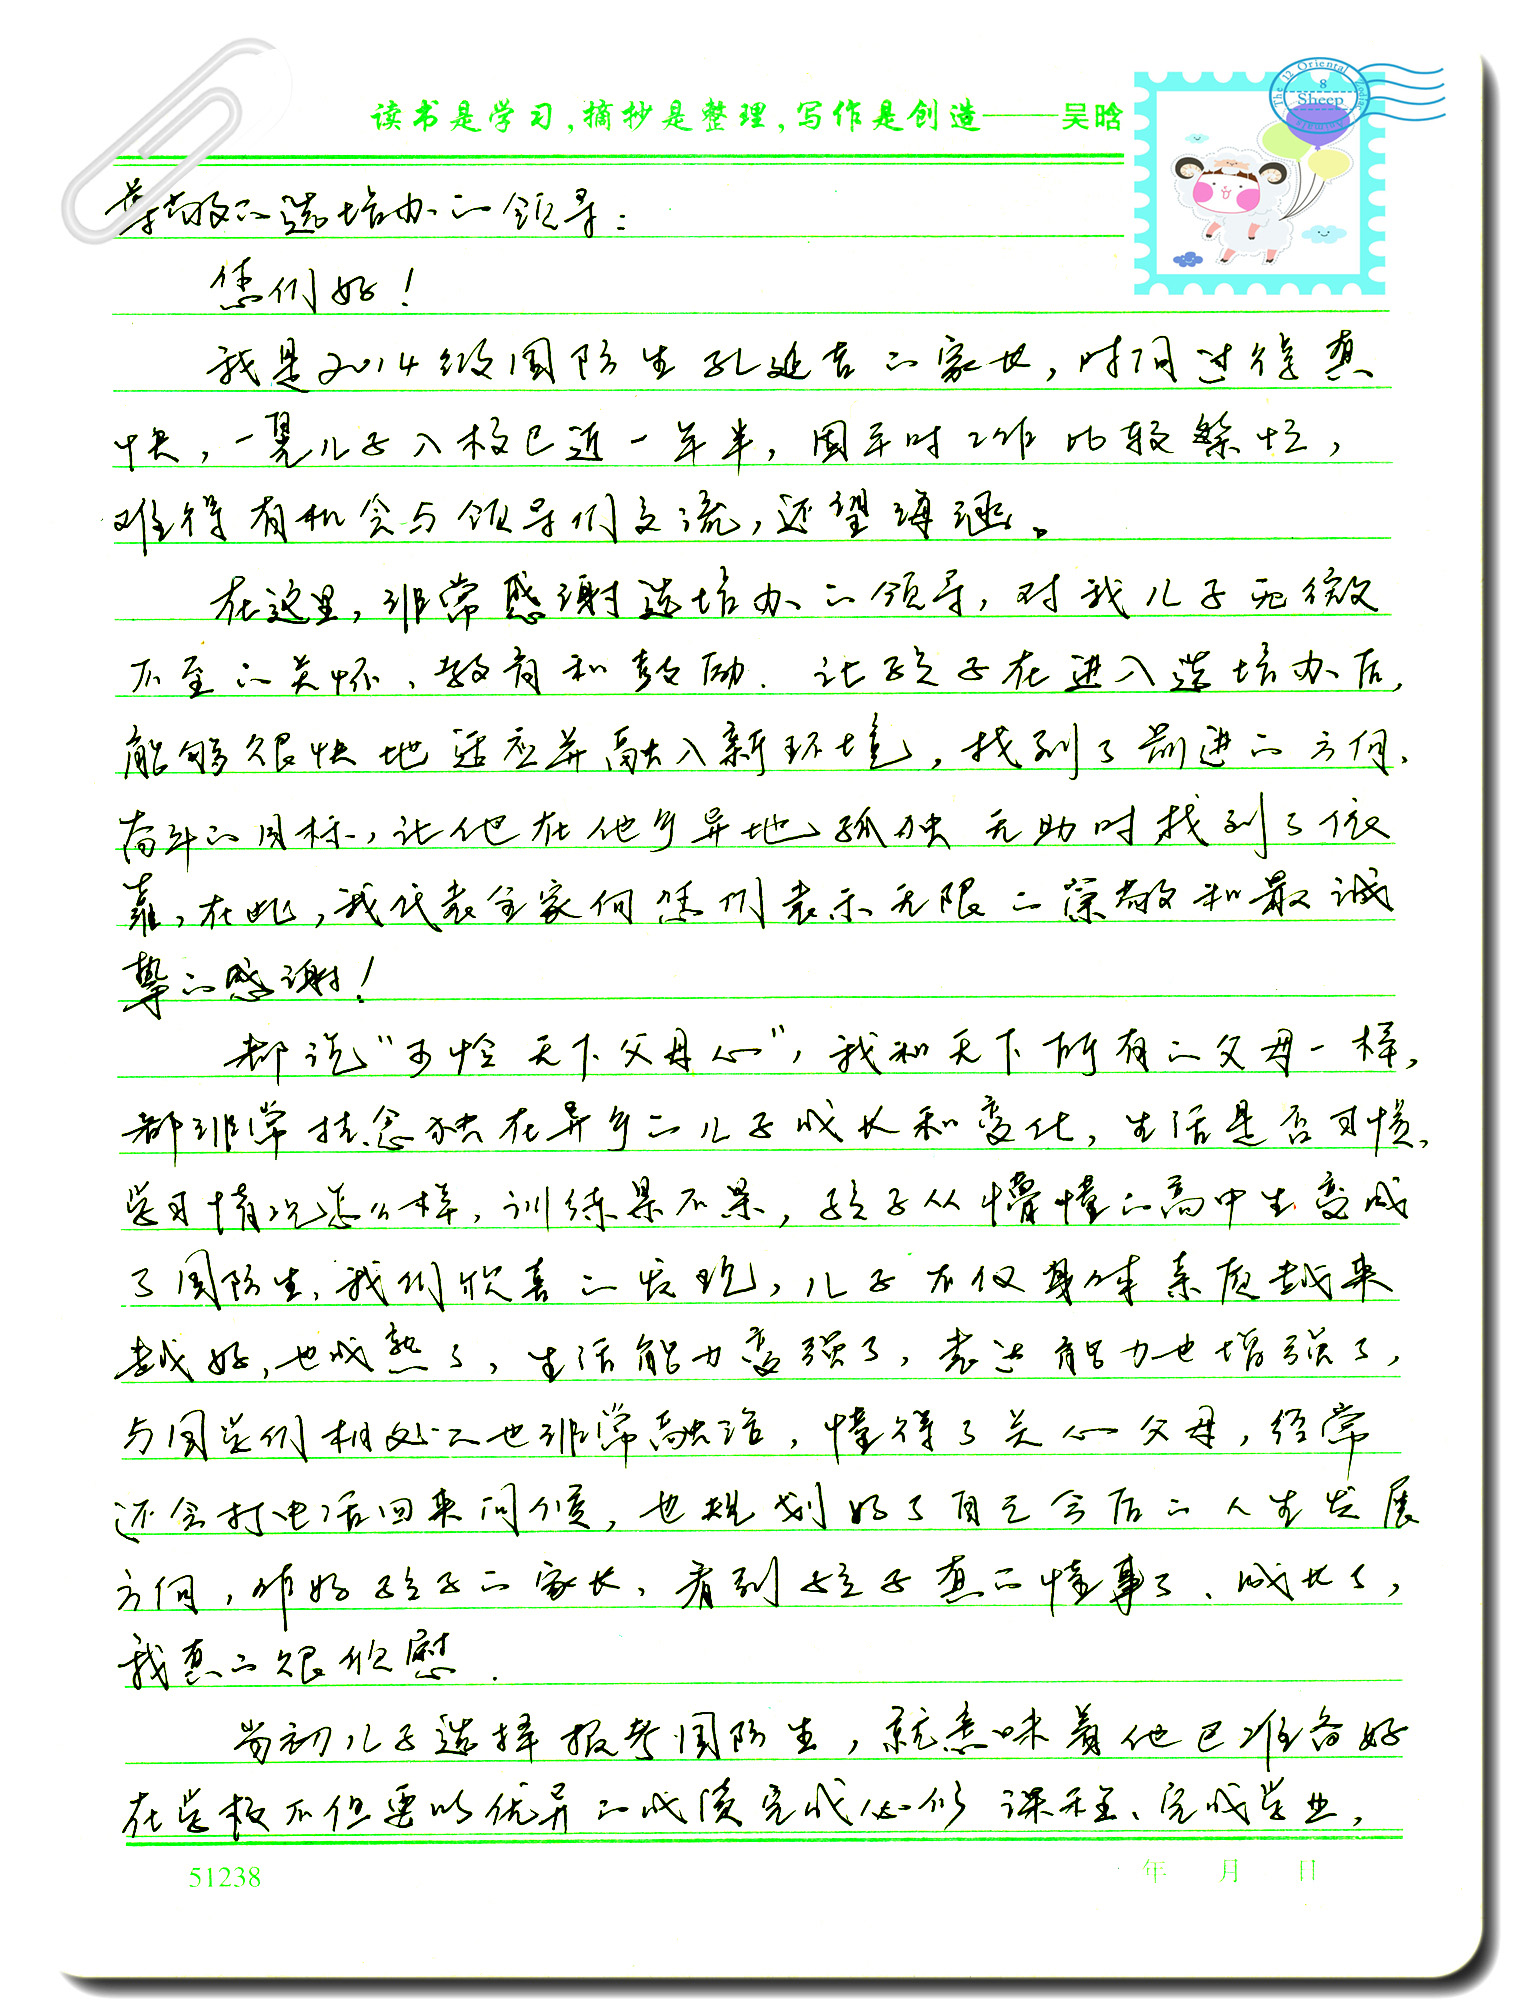 读书是学习,摘抄是整理,写作是创造——吴晗
The 12 Oriental Zodiac Animals
8
Sheep
尊敬的选培办的领导：
您们好！
我是2014级国防生孔延吉的家长，时间过得真
快，一晃儿子入校已近一年半，因平时工作比较繁忙，
难得有机会与领导们交流，还望海涵。
在这里，非常感谢选培办的领导，对我儿子无微
不至的关怀、教育和鼓励．让孩子在进入选培办后，
能够很快地适应并融入新环境，找到了前进的方向、
奋斗的目标，让他在他乡异地孤独无助时找到了依
靠，在此，我代表全家向您们表示无限的崇敬和最诚
挚的感谢！
都说“可怜天下父母心”，我和天下所有的父母一样，
都非常挂念独在异乡的儿子成长和变化，生活是否习惯、
学习情况怎么样，训练累不累，孩子从懵懂的高中生变成
了国防生，我们欣喜的发现，儿子不仅身体素质越来
越好，也成熟了，生活能力变强了，表达能力也增强了，
与同学们相处的也非常融洽，懂得了关心父母，经常
还会打电话回来问候，也规划好了自己今后的人生发展
方向，作为孩子的家长，看到孩子真的懂事了、成长了，
我真的很欣慰．
当初儿子选择报考国防生，就意味着他已准备好
在学校不但要以优异的成绩完成必修课程、完成学业，
51238
年 月 日